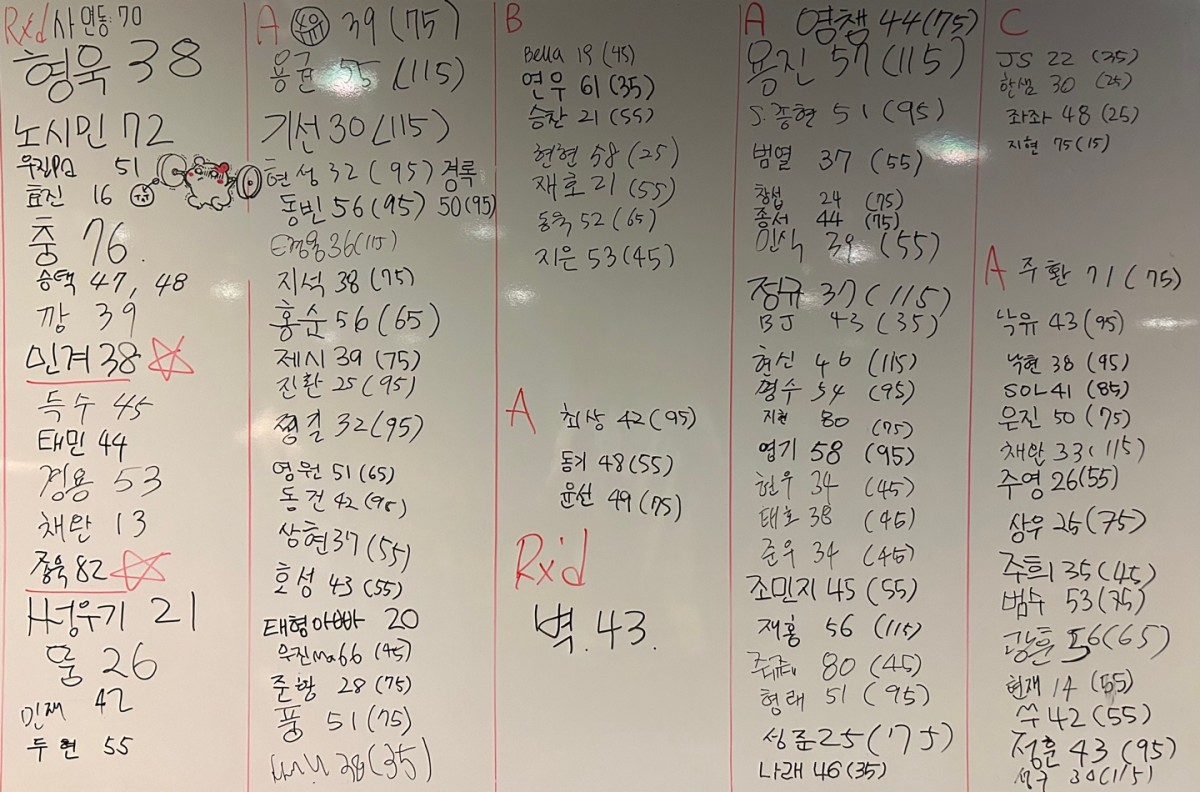 Rxd 사 연동: 70
형욱 38
노시민 72
우진PA 51
효진 16
충 76.
승택 47, 48
깡 39
민겨 38
득수 45
태민 44
경용 53
채완 13
종욱 82
H성우기 21
뭉 26
민재 42
두현 55
A 39 (75)
용균 55 (115)
기선 30 (115)
현성 32 (95) 경록
동빈 56 (95) 50 (95)
36 (115)
지석 38 (75)
홍순 56 (65)
제시 39 (75)
진환 25 (95)
정길 32 (95)
영원 51 (65)
동건 42 (95)
상현 37 (55)
호성 43 (55)
태형아빠 20
우진ma 66 (45)
준항 28 (75)
풍 51 (75)
28 (35)
B
Bella 19 (45)
연우 61 (35)
승찬 21 (55)
현현 58 (25)
재호 21 (55)
동욱 52 (65)
지은 53 (45)
A 최상 42 (95)
동기 48 (55)
윤선 49 (75)
Rx'd
벽. 43.
A 영챔 44 (75)
용진 57 (115)
S. 종현 51 (95)
범열 37 (55)
창섭 24 (75)
종서 44 (75)
민식 39 (55)
정규 37 (115)
BJ 43 (35)
현신 46 (115)
명수 54 (95)
지현 80 (75)
엽기 58 (95)
현우 34 (45)
태호 38 (45)
준우 34 (45)
조민지 45 (55)
재홍 56 (115)
80 (45)
형래 51 (95)
성준 25 (75)
나래 46 (35)
C
JS 22 (35)
한샘 30 (25)
좌좌 48 (25)
지현 75 (15)
A 주환 71 (75)
낙유 43 (95)
낙현 38 (95)
SOL 41 (85)
은진 50 (75)
채완 33 (115)
주영 26 (55)
상우 25 (75)
주희 35 (45)
범수 53 (75)
광훈 56 (65)
현재 14 (55)
쑤 42 (55)
정훈 43 (95)
성구 30 (115)